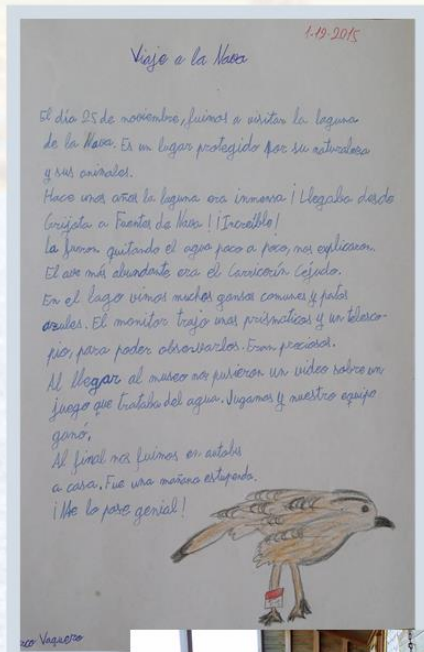 1-19-2015
Viaje a la Nava
El día 25 de noviembre, fuimos a visitar la laguna
de la Nava. Es un lugar protegido por su naturaleza
y sus animales.
Hace unos años la laguna era inmensa ¡Llegaba desde
Grijota a Fuentes de Nava! ¡Increíble!
La fueron quitando el agua poco a poco, nos explicaron.
El ave más abundante era el Carricerín Cejudo.
En el lago vimos muchos gansos comunes y patos
azules. El monitor trajo unos prismaticos y un telesco-
pio, para poder observarlos. Eran preciosos.
Al llegar al museo nos pusieron un video sobre un
juego que trataba del agua. Jugamos y nuestro equipo
ganó.
Al final nos fuimos en autobús
a casa. Fue una mañana estupenda.
¡Me lo pase genial!
Vaquero